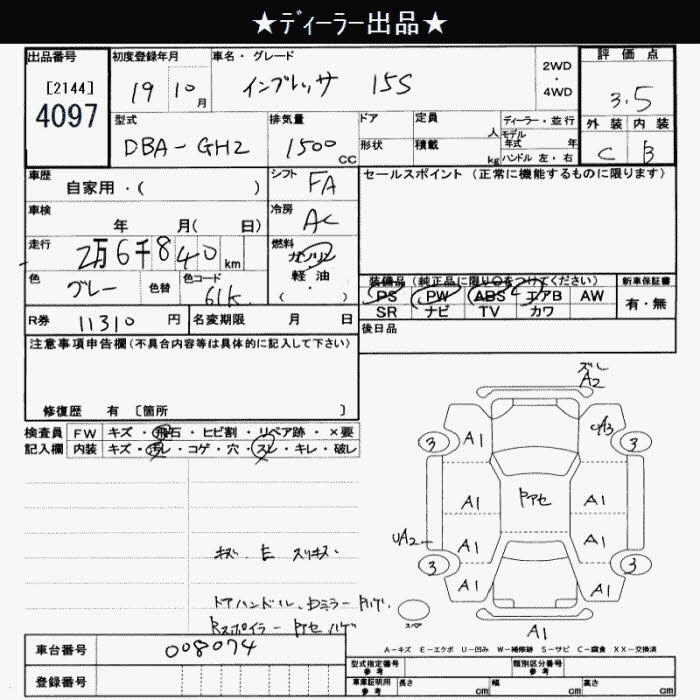 ★ディーラー出品★
出品番号
[2144]
4097
初度登録年月
19 10月
車名・グレード
インプレッサ 15S
2WD
・
4WD
評価点
3.5
外装 内装
C B
型式
DBA-GH2
排気量
1500 CC
ドア
形状
定員 人
積載 kg
ディーラー・並行
モデル年式 年
ハンドル 左・右
車歴
自家用・( )
シフト
FA
セールスポイント (正常に機能するものに限ります)
車検
年 月( 日)
冷房
AC
走行
2万6千840 km
燃料
ガソリン
軽油
( )
色
グレー
色替
色コード
61K
装備品 (純正品に限り〇をつけてください)
PS PW ABS エアB AW
SR ナビ TV カワ
新車保証書
有・無
R券 11310 円
名変期限 月 日
後日品
注意事項申告欄(不具合内容等は具体的に記入して下さい)
修復歴 有 [箇所 ]
検査員 FW キズ・飛石・ヒビ割・リペア跡・×要
記入欄 内装 キズ・汚レ・コゲ・穴・スレ・キレ・破レ
ズレ
A2
3 A1 3
A1 ドアセ A1
UA2 A1 A1
3 A1 A1 3
キズ・E スリキズ・
ドアハンドル、Dミラー
Rスポイラー
スペア
A1
A-キズ E-エクボ U-凹み W-補修跡 S-サビ C-腐食 XX-交換済
車台番号 008074
登録番号
型式指定番号
参考
類別区分番号
参考
車庫証明用
参考
長さ cm 幅 cm 高さ cm